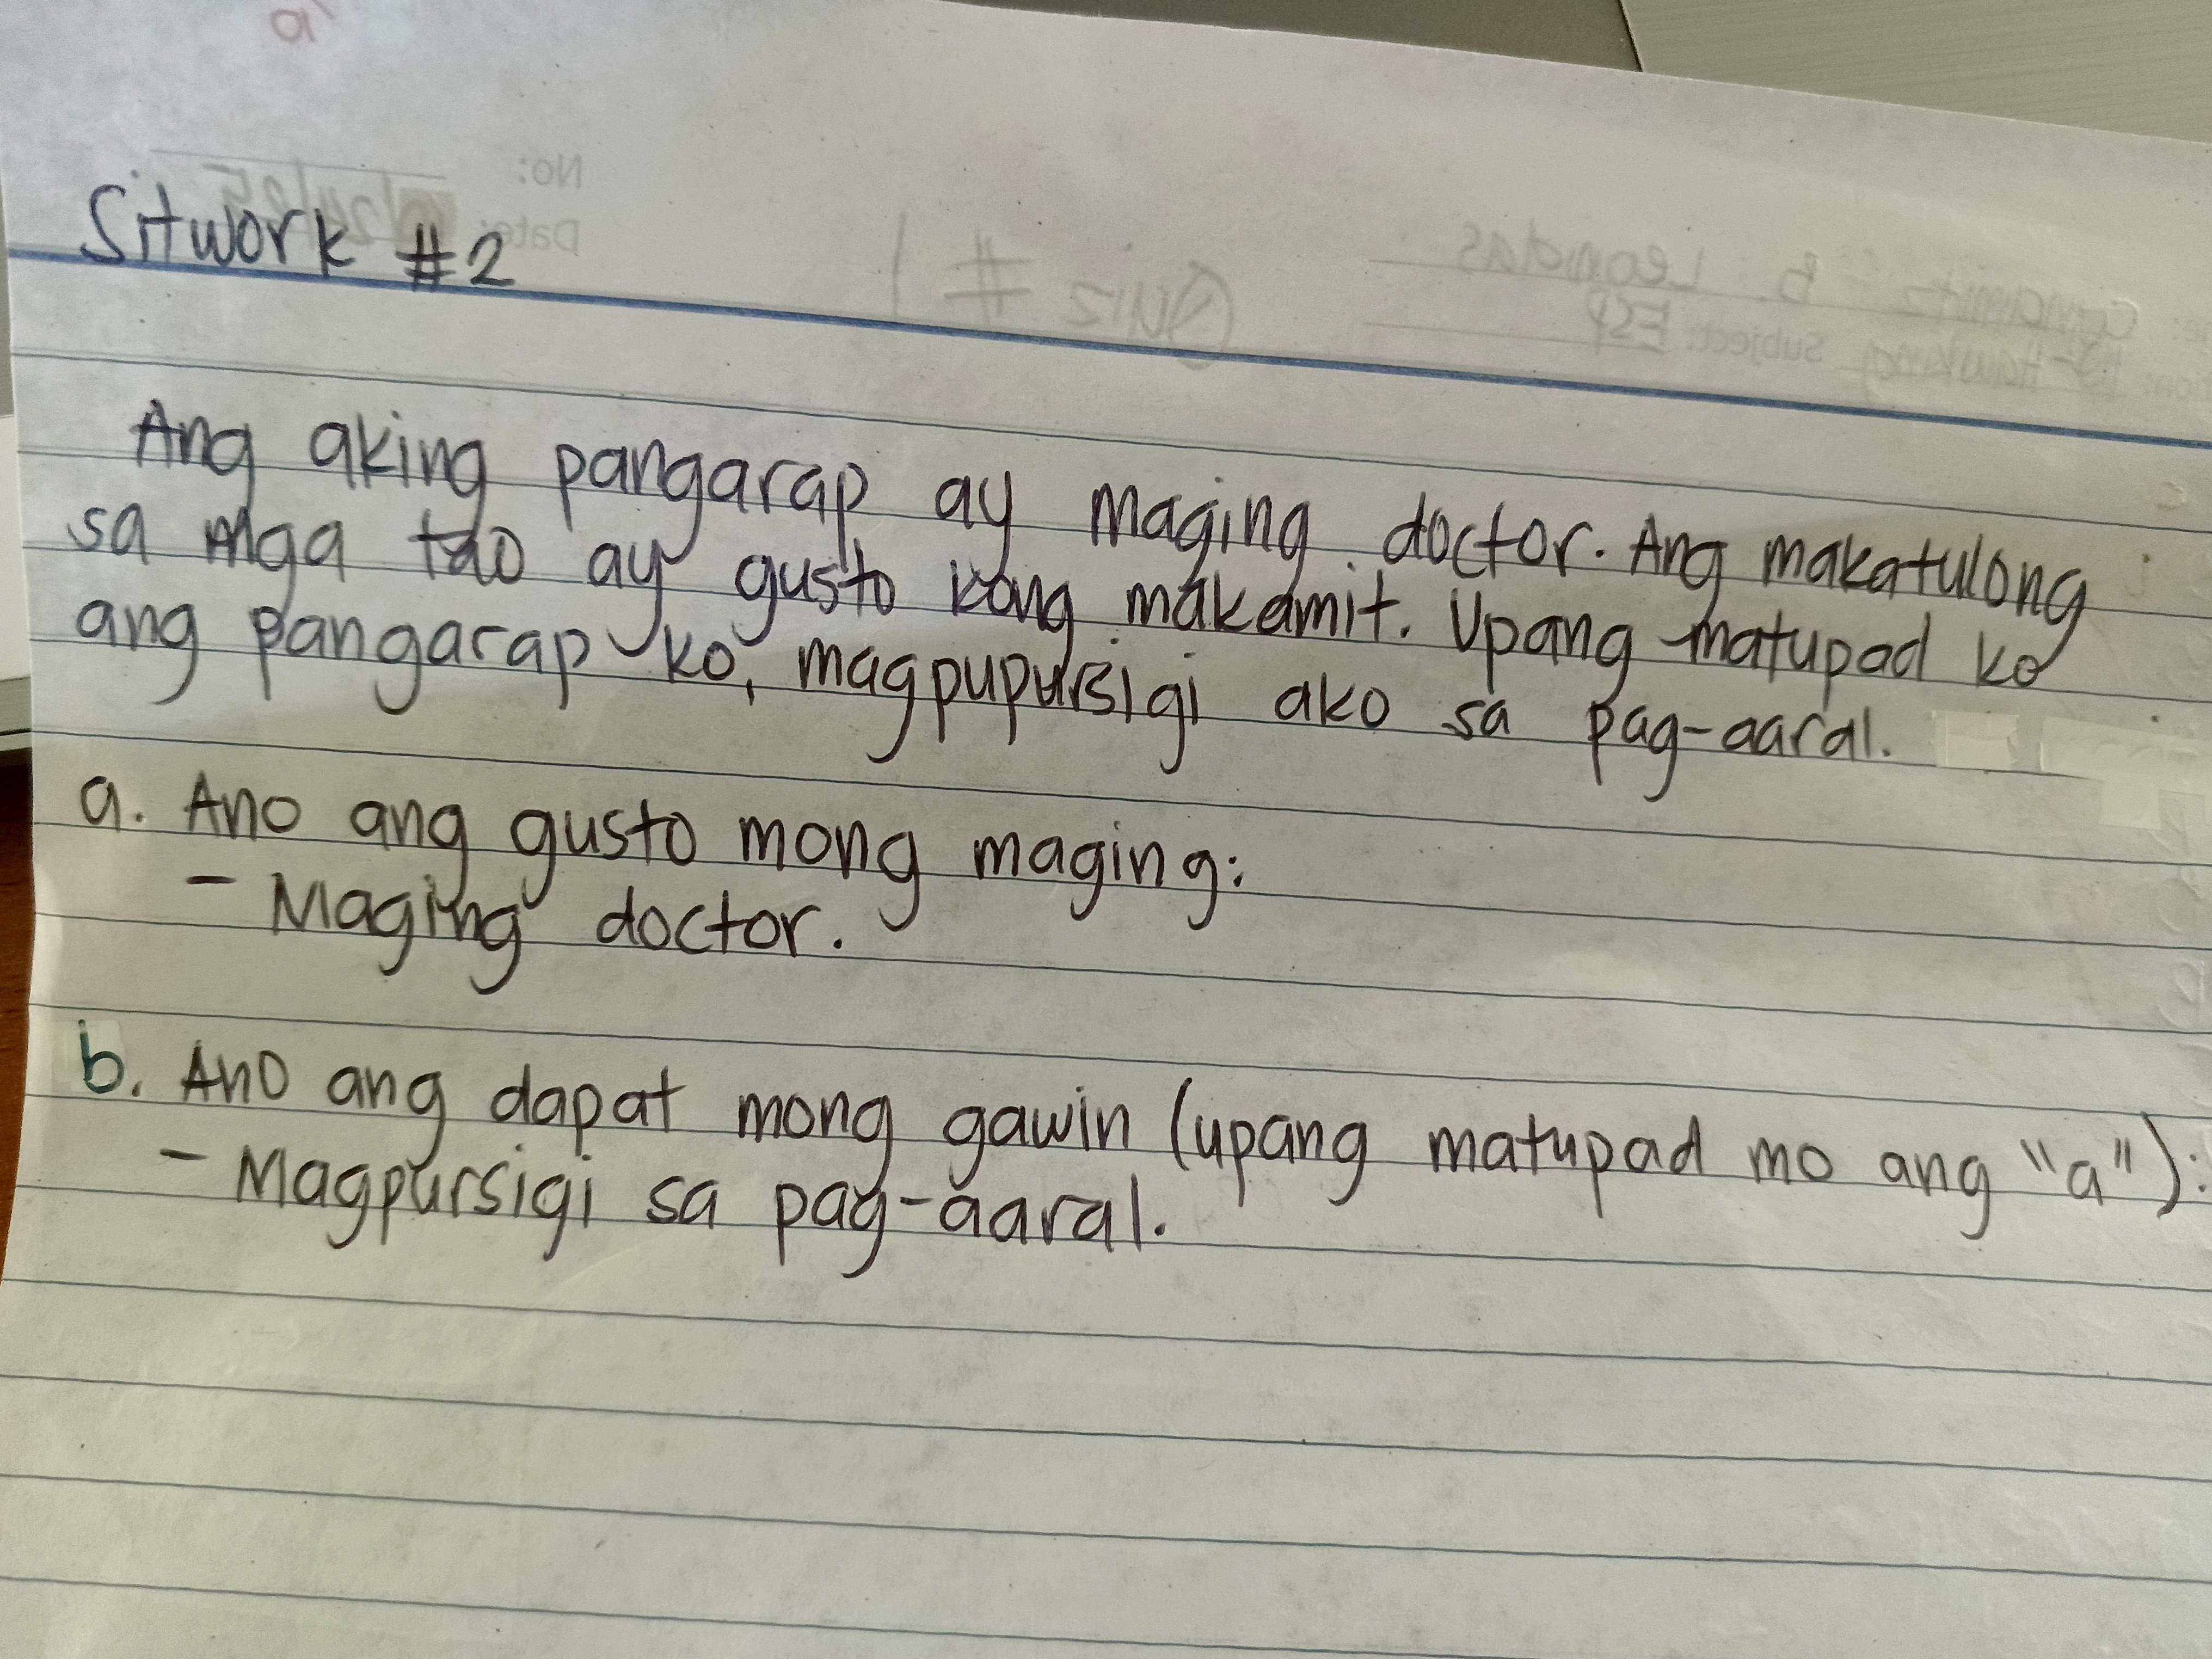 Sitwork #2
Ang aking pangarap ay maging doctor. Ang makatulong
sa mga tao ay gusto kong makamit. Upang matupad ko
ang pangarap ko, magpupursigi ako sa pag-aaral.
a. Ano ang gusto mong maging:
- Maging doctor.
b. Ano ang dapat mong gawin (upang matupad mo ang "a"):
- Magpursigi sa pag-aaral.
No:
Date:
Quiz #1
B. Leonidas
Subject: ESP
Hawking